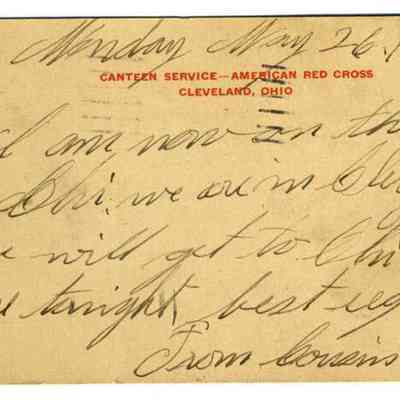 Monday May 26.
CANTEEN SERVICE—AMERICAN RED CROSS
CLEVELAND, OHIO
I am now on th
Chi. we are in Cle
will get to Chi
tonight, best reg
From Cousin